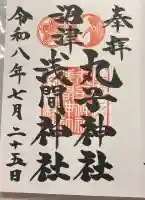 奉拝
丸子神社
沼津
浅間神社
令和八年七月二十五日